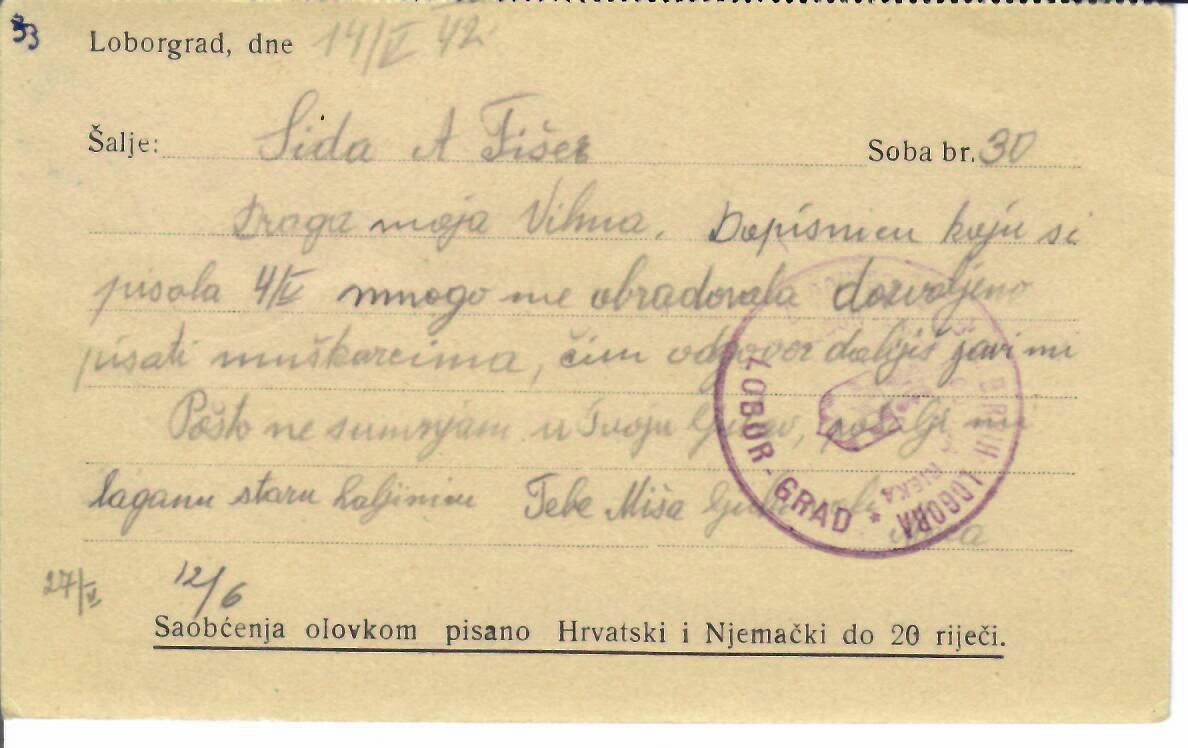 33
Loborgrad, dne 14/V 42
Šalje: Sida A Fišer Soba br. 30
Draga moja Vilma. Dopisnicu koju si
pisala 4/V mnogo me obradovala dozvoljeno
pisati muškarcima, čim odgovor dobiješ javi mi
Pošto ne sumnjam u Tvoju ljubav, pošalji mi
laganu staru haljinicu Tebe Miša ljubi
LOBOR-GRAD * LOGORA
RIJEKA
27/V 12/6
Saobćenja olovkom pisano Hrvatski i Njemački do 20 riječi.